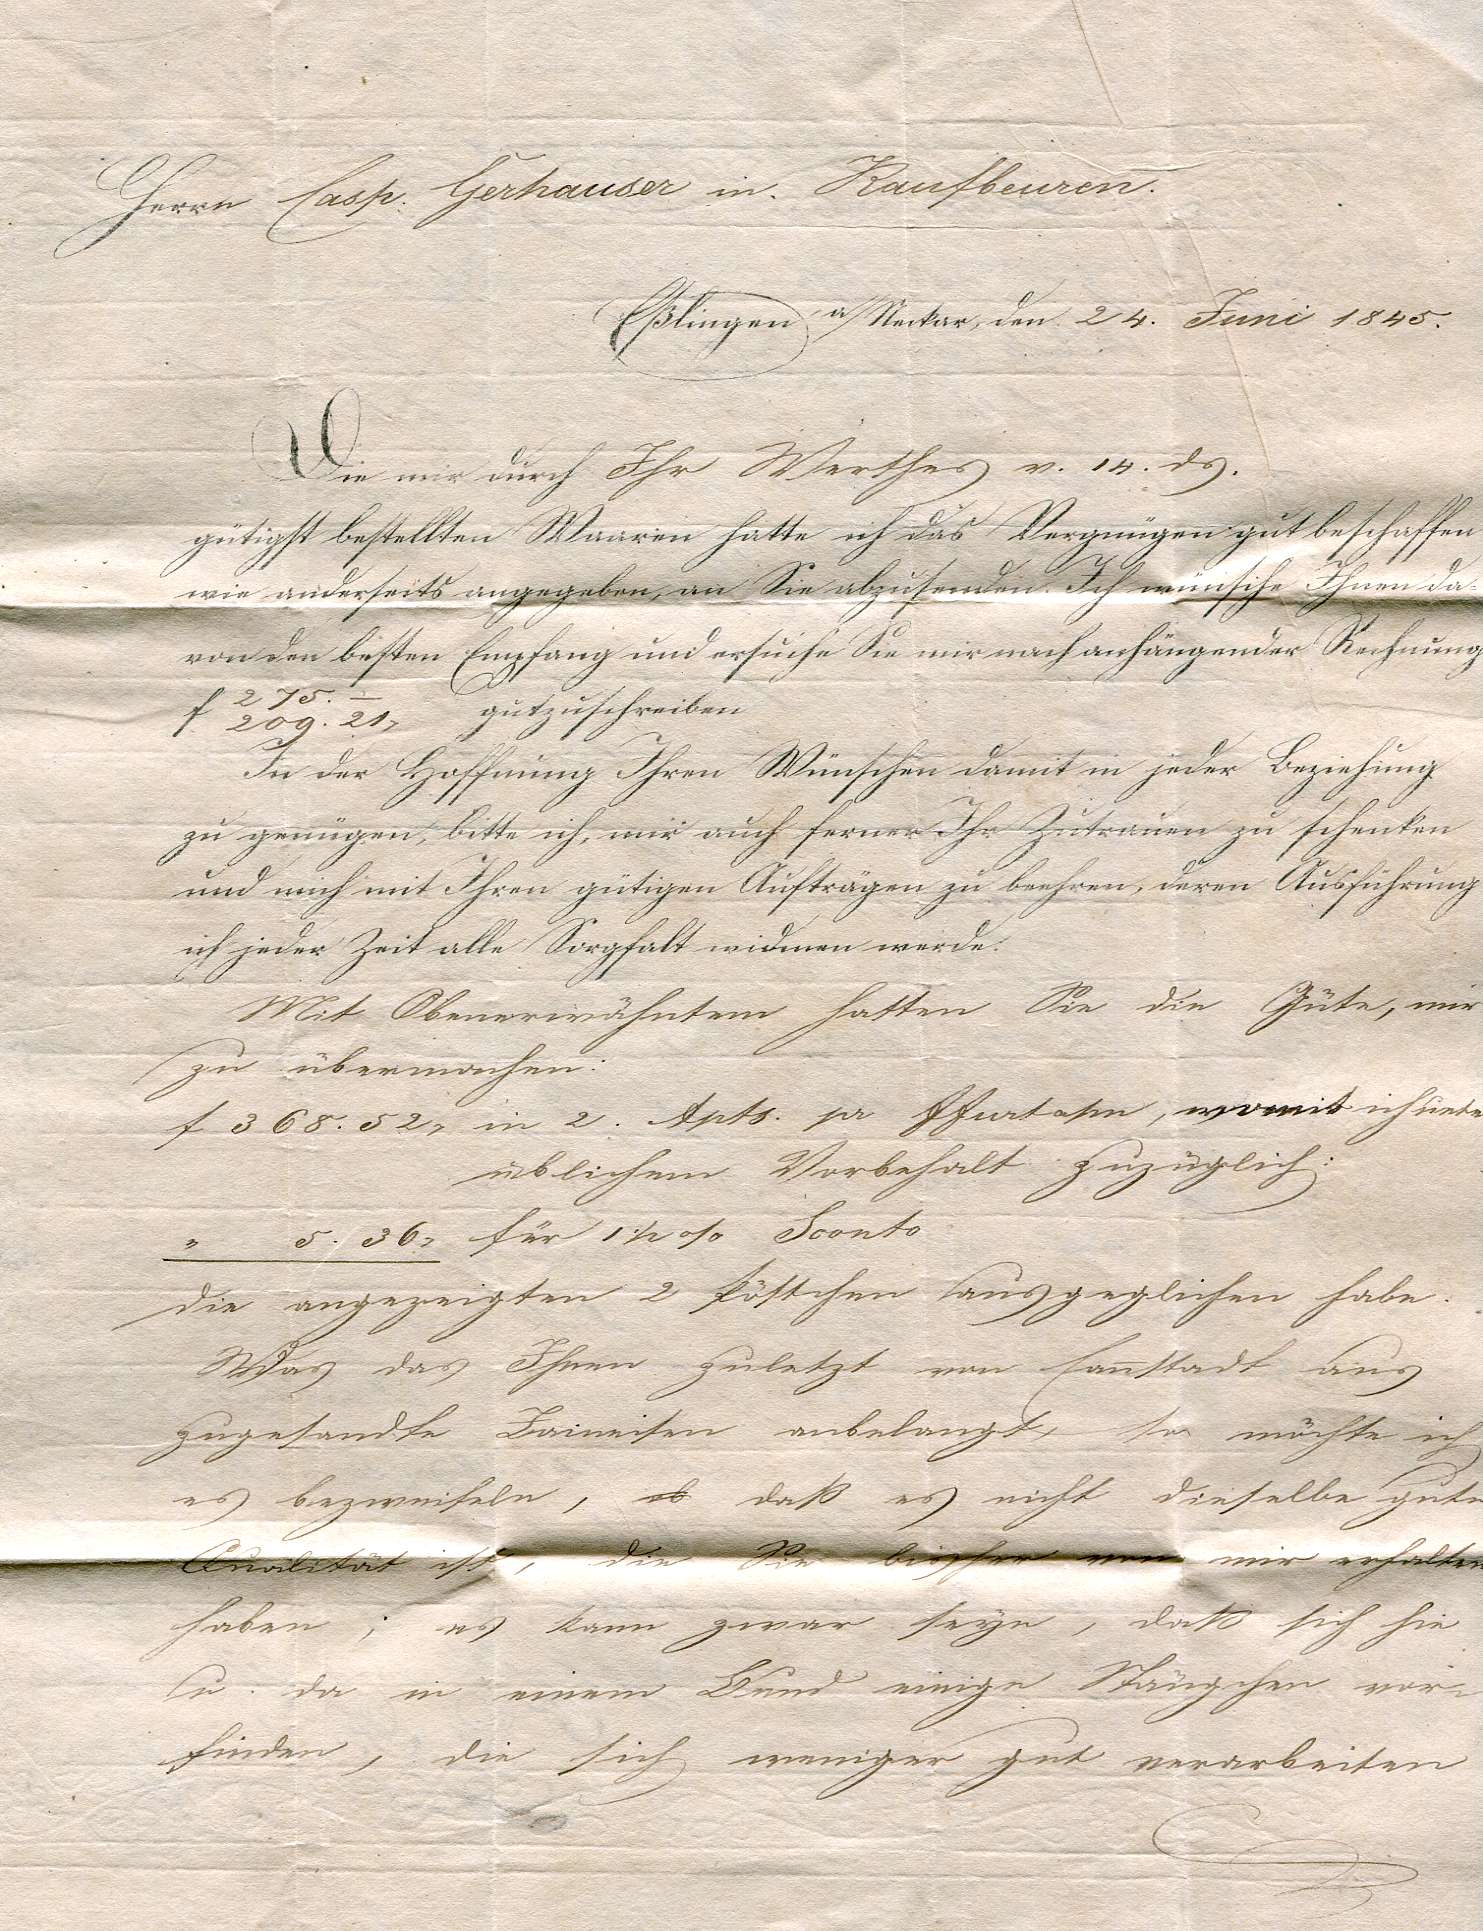 Herrn Casp. Gerhauser in Kaufbeuren.
Eßlingen a/Neckar, den 24. Juni 1845.
Die mir durch Ihr Werthes v. 14. ds.
gütigst bestellten Waaren hatte ich das Vergnügen gut beschaffen
wie anderseits angegeben, an Sie abzusenden. Ich wünsche Ihnen da-
von den besten Empfang und ersuche Sie mir nach anhängender Rechnung
f 275. —
209. 21, gutzuschreiben
In der Hoffnung Ihren Wünschen damit in jeder Beziehung
zu genügen, bitte ich, mir auch ferner Ihr Zutrauen zu schenken
und mich mit Ihren gütigen Aufträgen zu beehren, deren Ausführung
ich jeder Zeit alle Sorgfalt widmen werde.
Mit Obenerwähntem hatten Sie die Güte, mir
zu übermachen:
f 368. 52, in 2. Apts. pr, womit ich unter
üblichem Vorbehalt zuzüglich:
" 5. 36, für 1 1/2 o/o Sconto
die angezeigten 2 Pöstchen ausgeglichen habe.
Was das Ihnen zuletzt von Canstadt aus
zugesandte anbelangt, so möchte ich
es bezweifeln, ob daß es nicht dieselbe gute
Qualität ist, die Sie bisher von mir erhalten
haben; es kann zwar seyn, daß sich hie
u. da in einem Bund einige Stängchen vor-
finden, die sich weniger gut verarbeiten